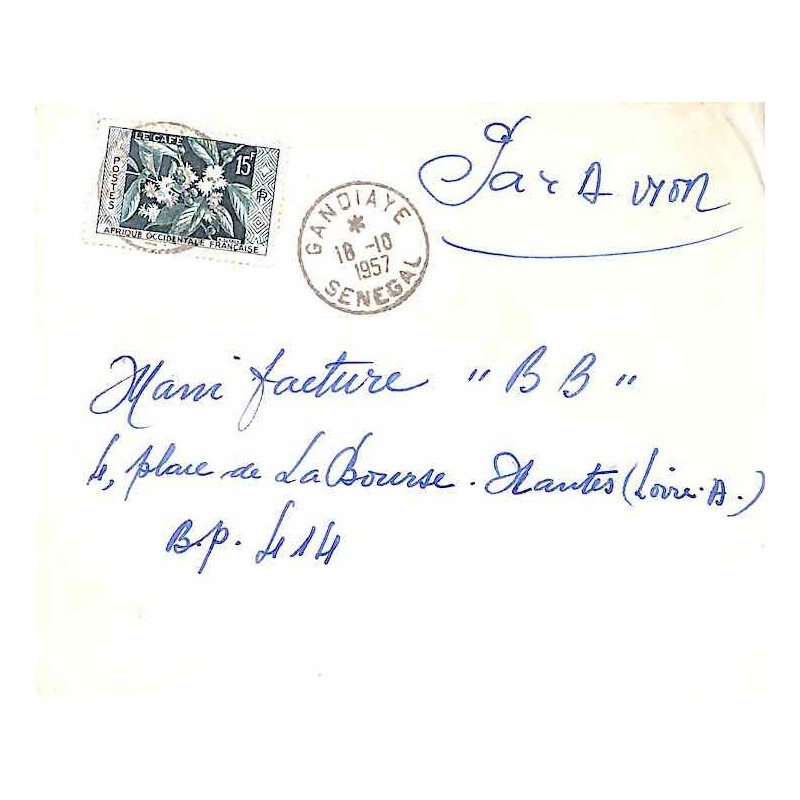 LE CAFÉ
POSTES
15F
RF
AFRIQUE OCCIDENTALE FRANÇAISE
GANDIAYE
18 -10
1957
SENEGAL
Par Avion
Manufacture "BB"
4, place de La Bourse. Nantes (Loire.A.)
B.P. 414